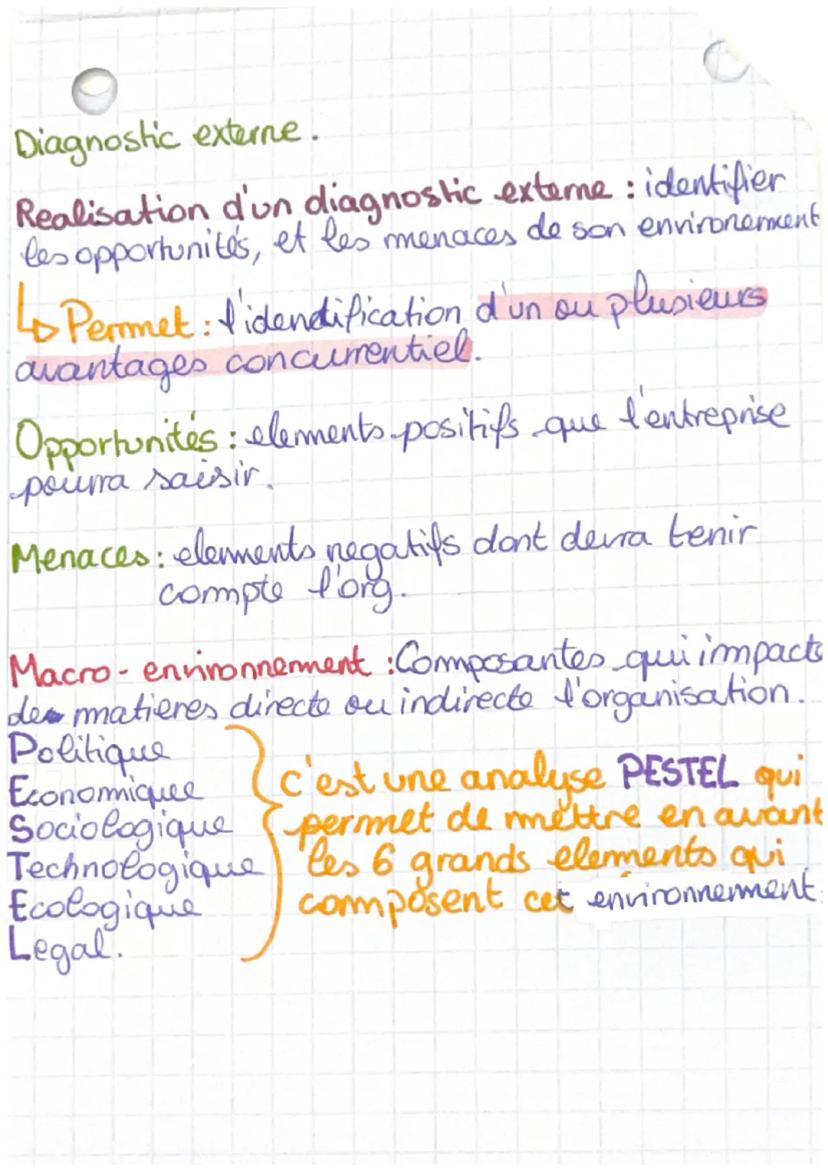 Diagnostic externe.
Realisation d'un diagnostic externe : identifier
les opportunités, et les menaces de son environement
↳ Permet : l'idendification d'un ou plusieurs
avantages concurrentiel.
Opportunités : elements positifs que l'entreprise
pourra saisir.
Menaces : elements negatifs dont devra tenir
compte l'org.
Macro-environnement : Composantes qui impacts
des matieres directe ou indirecte l'organisation.
Politique
Economique
Sociologique
Technologique
Ecologique
Legal.
c'est une analyse PESTEL qui
permet de mettre en avant
les 6 grands elements qui
composent cet environnement